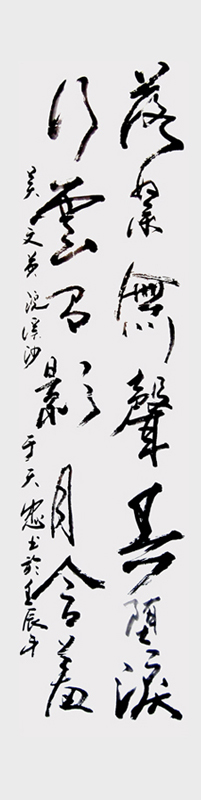 落絮無聲春墮淚
行雲有影月含羞
吴文英浣溪沙于天忠书於壬辰年